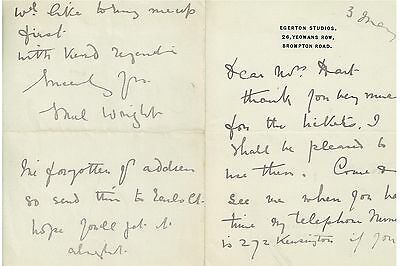 3 May
EGERTON STUDIOS,
26, YEOMANS ROW,
BROMPTON ROAD.
Dear Mrs. Hart
thank you very much
for the tickets. I
shall be pleased to
use them. Come &
see me when you ha
time my telephone
is 272 Kensington if you
like to ring me up
first
with kind regards
Sincerely yrs.
Wright
I've forgotten yr address
so send this to Earls Ct.
hope you'll get it
alright.